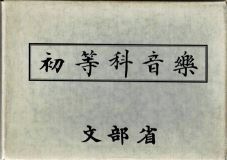 初等科音樂
文部省